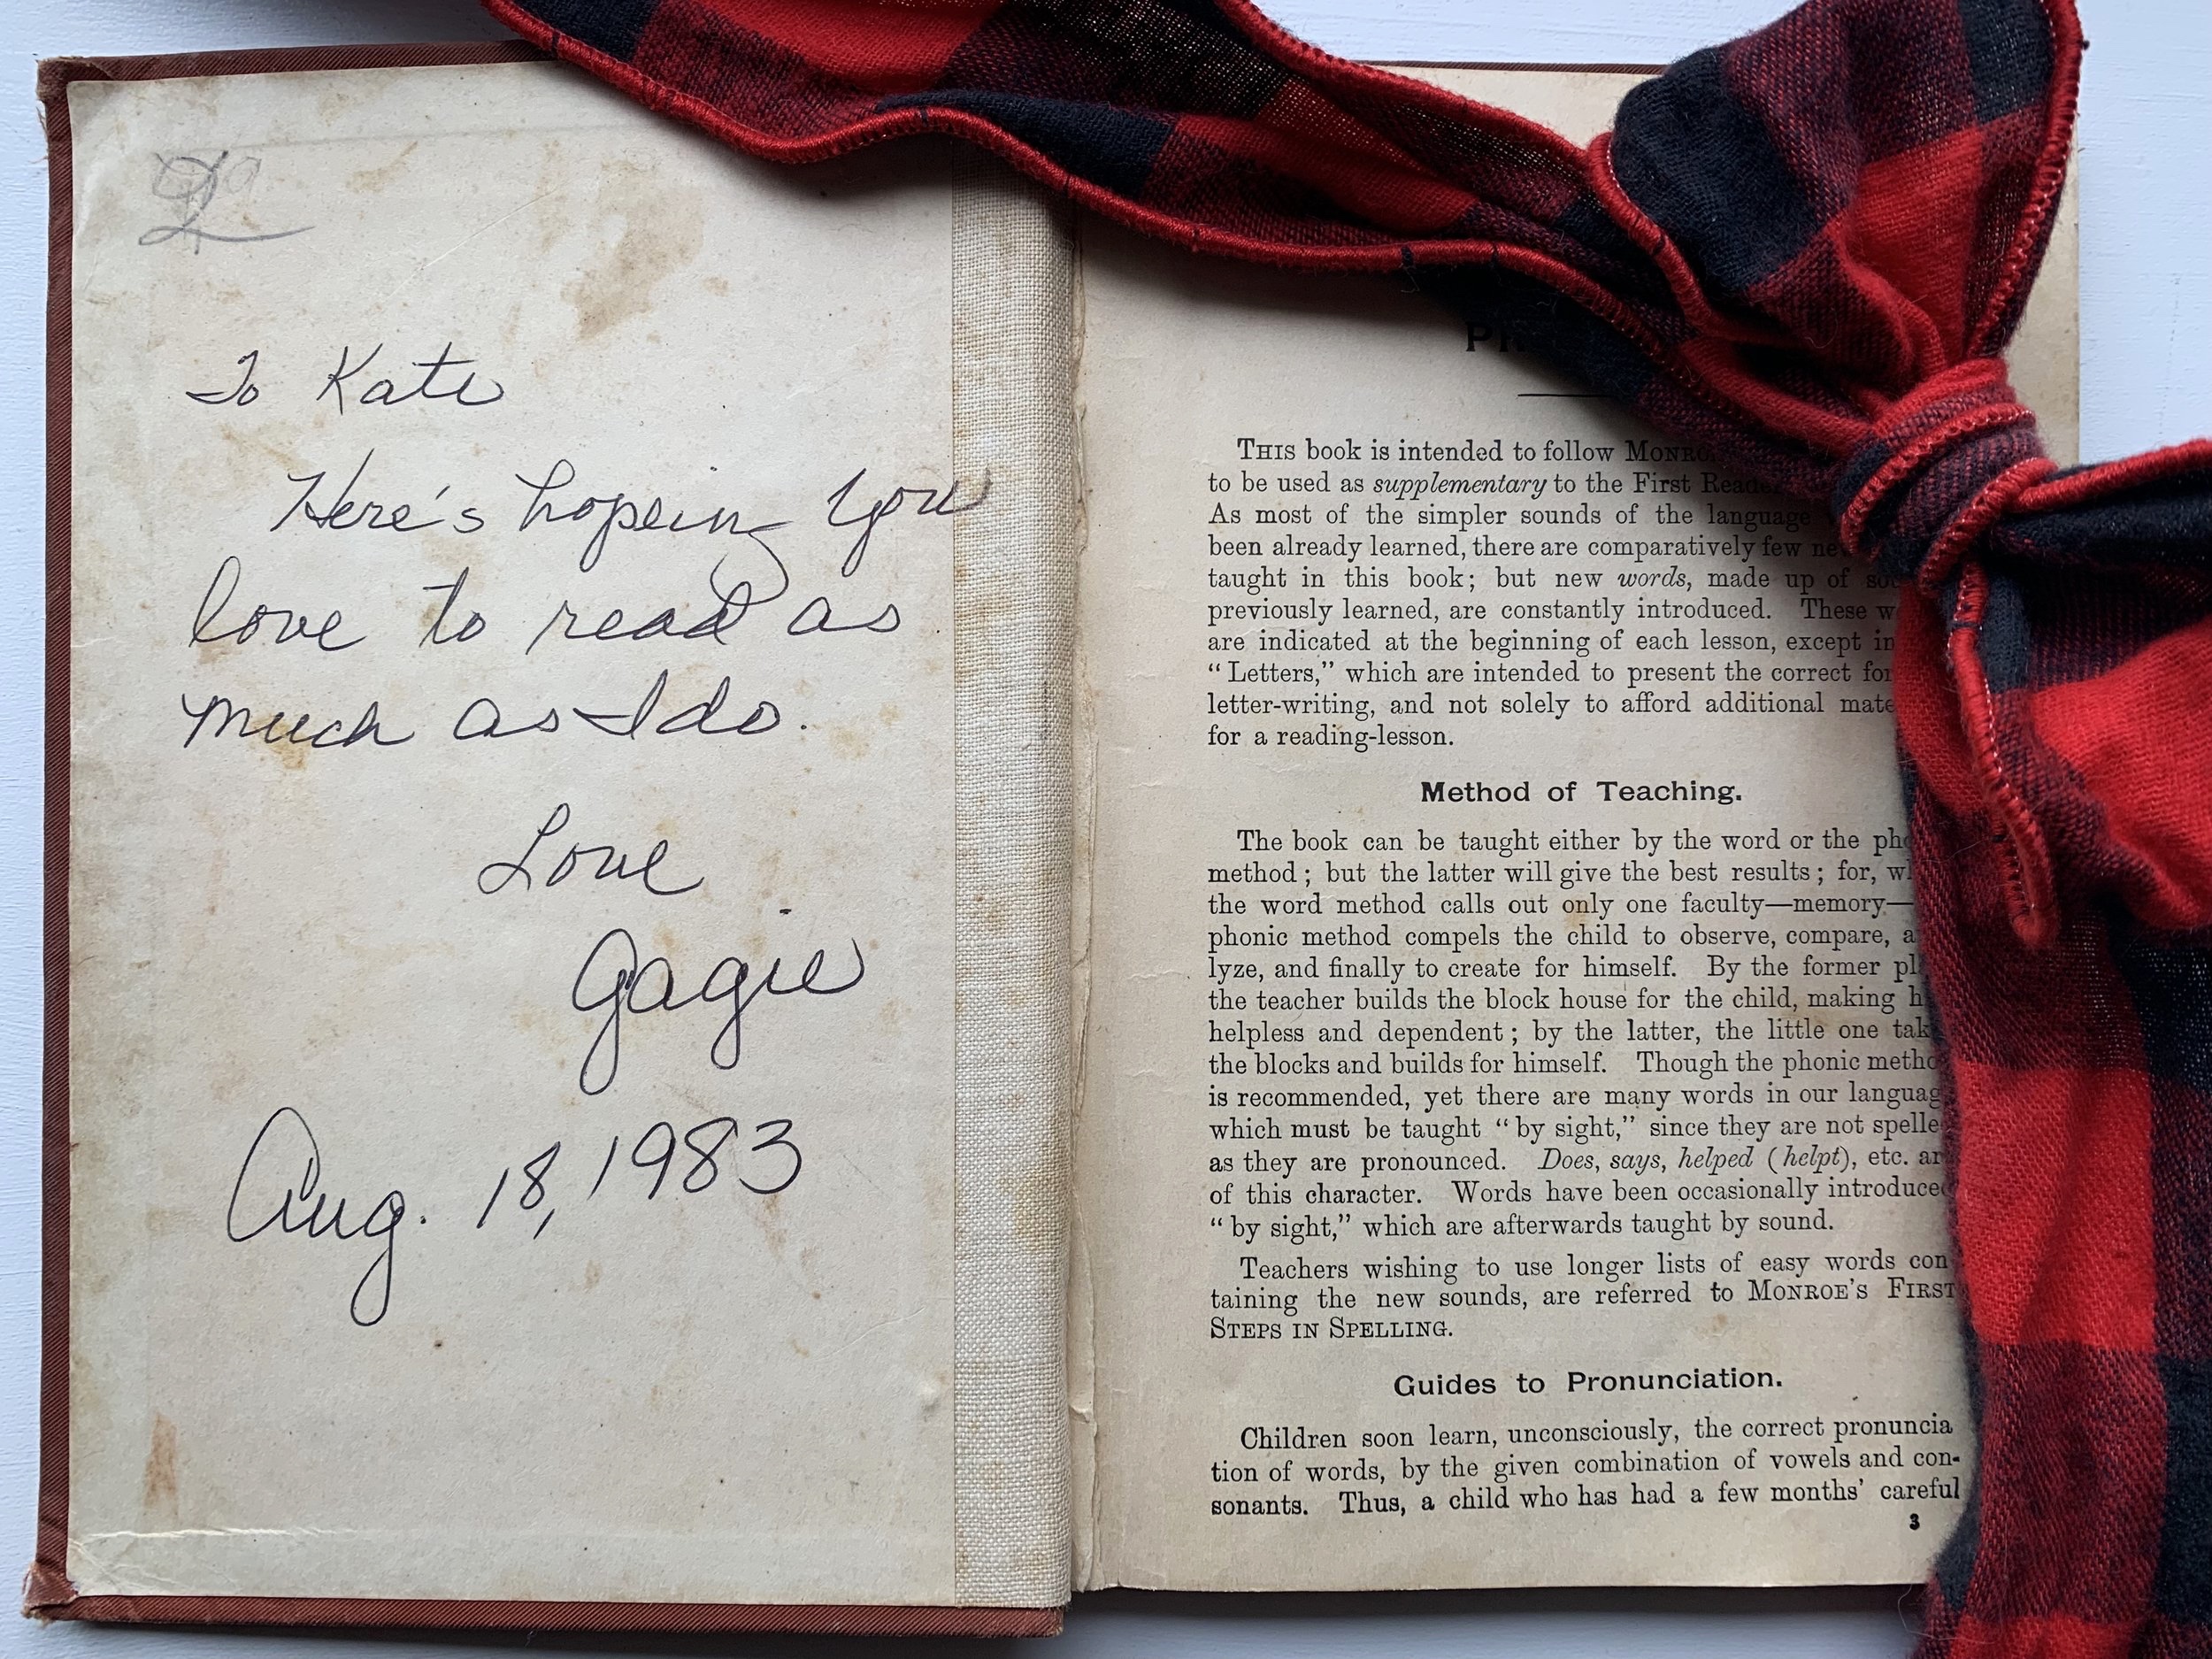 To Kate
Here's hopeing you
love to read as
much as I do.
Love
Gagie
Aug. 18, 1983
THIS book is intended to follow
to be used as supplementary to the First
As most of the simpler sounds of the language
been already learned, there are comparatively few
taught in this book; but new words, made up of
previously learned, are constantly introduced. These
are indicated at the beginning of each lesson, except in
“Letters,” which are intended to present the correct
letter-writing, and not solely to afford additional
for a reading-lesson.
Method of Teaching.
The book can be taught either by the word or the
method; but the latter will give the best results; for,
the word method calls out only one faculty—memory—
phonic method compels the child to observe, compare,
lyze, and finally to create for himself. By the former
the teacher builds the block house for the child, making
helpless and dependent; by the latter, the little one
the blocks and builds for himself. Though the phonic
is recommended, yet there are many words in our
which must be taught “by sight,” since they are not
as they are pronounced. Does, says, helped (helpt), etc.
of this character. Words have been occasionally
“by sight,” which are afterwards taught by sound.
Teachers wishing to use longer lists of easy words con
taining the new sounds, are referred to MONROE'S FIRST
STEPS IN SPELLING.
Guides to Pronunciation.
Children soon learn, unconsciously, the correct pronuncia
tion of words, by the given combination of vowels and con-
sonants. Thus, a child who has had a few months' careful
3